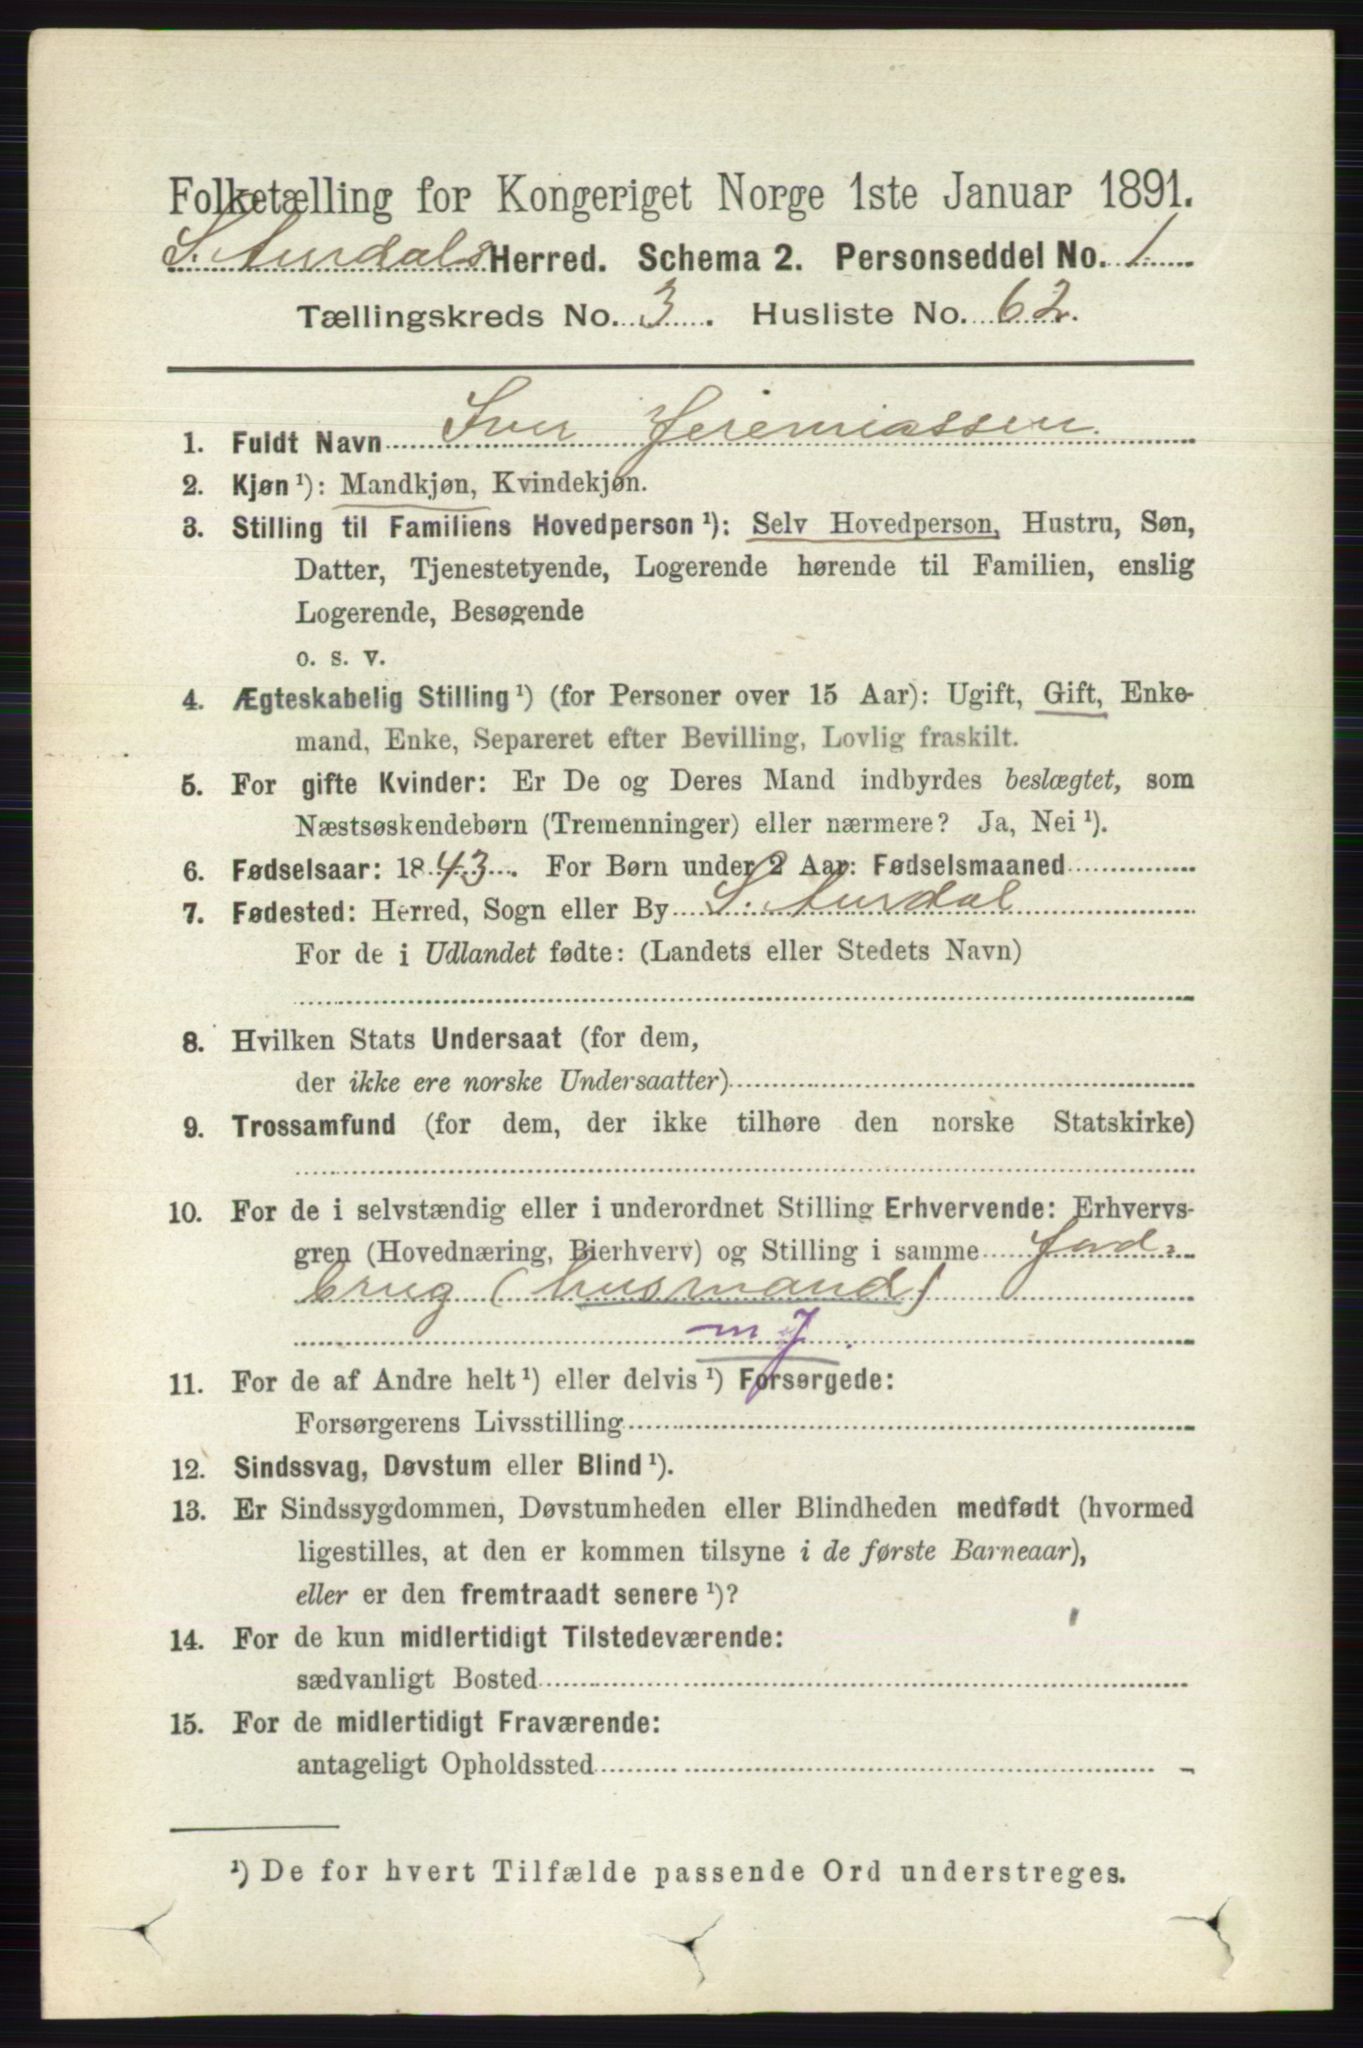 Folketælling for Kongeriget Norge 1ste Januar 1891.
S. Aurdals Herred. Schema 2. Personseddel No. 1
Tællingskreds No. 3. Husliste No. 62.
1. Fuldt Navn Iver Jeremiassen.
2. Kjøn ¹): Mandkjøn, Kvindekjøn.
3. Stilling til Familiens Hovedperson ¹): Selv Hovedperson, Hustru, Søn,
Datter, Tjenestetyende, Logerende hørende til Familien, enslig
Logerende, Besøgende
o. s. v.
4. Ægteskabelig Stilling ¹) (for Personer over 15 Aar): Ugift, Gift, Enke-
mand, Enke, Separeret efter Bevilling, Lovlig fraskilt.
5. For gifte Kvinder: Er De og Deres Mand indbyrdes beslægtet, som
Næstsøskendebørn (Tremenninger) eller nærmere? Ja, Nei ¹).
6. Fødselsaar: 1843. For Børn under 2 Aar: Fødselsmaaned
7. Fødested: Herred, Sogn eller By S. Aurdal
For de i Udlandet fødte: (Landets eller Stedets Navn)
8. Hvilken Stats Undersaat (for dem,
der ikke ere norske Undersaatter)
9. Trossamfund (for dem, der ikke tilhøre den norske Statskirke)
10. For de i selvstændig eller i underordnet Stilling Erhvervende: Erhvervs-
gren (Hovednæring, Bierhverv) og Stilling i samme Jord-
brug (husmand)
m J.
11. For de af Andre helt ¹) eller delvis ¹) Forsørgede:
Forsørgerens Livsstilling
12. Sindssvag, Døvstum eller Blind ¹).
13. Er Sindssygdommen, Døvstumheden eller Blindheden medfødt (hvormed
ligestilles, at den er kommen tilsyne i de første Barneaar),
eller er den fremtraadt senere ¹)?
14. For de kun midlertidigt Tilstedeværende:
sædvanligt Bosted
15. For de midlertidigt Fraværende:
antageligt Opholdssted
¹) De for hvert Tilfælde passende Ord understreges.